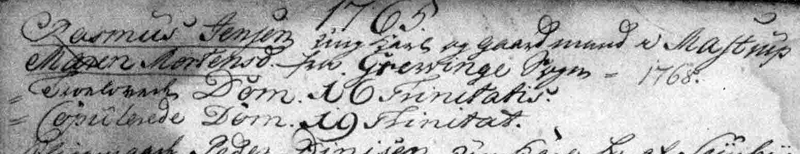 1765
Rasmus Jensen ung karl og gaardmand i Mastrup
Maren Mortensd. fra Grevvinge Sogn = 1768.
= Trolovede Dom. 16 Trinitatis.
= Copulerede Dom. 19 Trinitat.
Peder